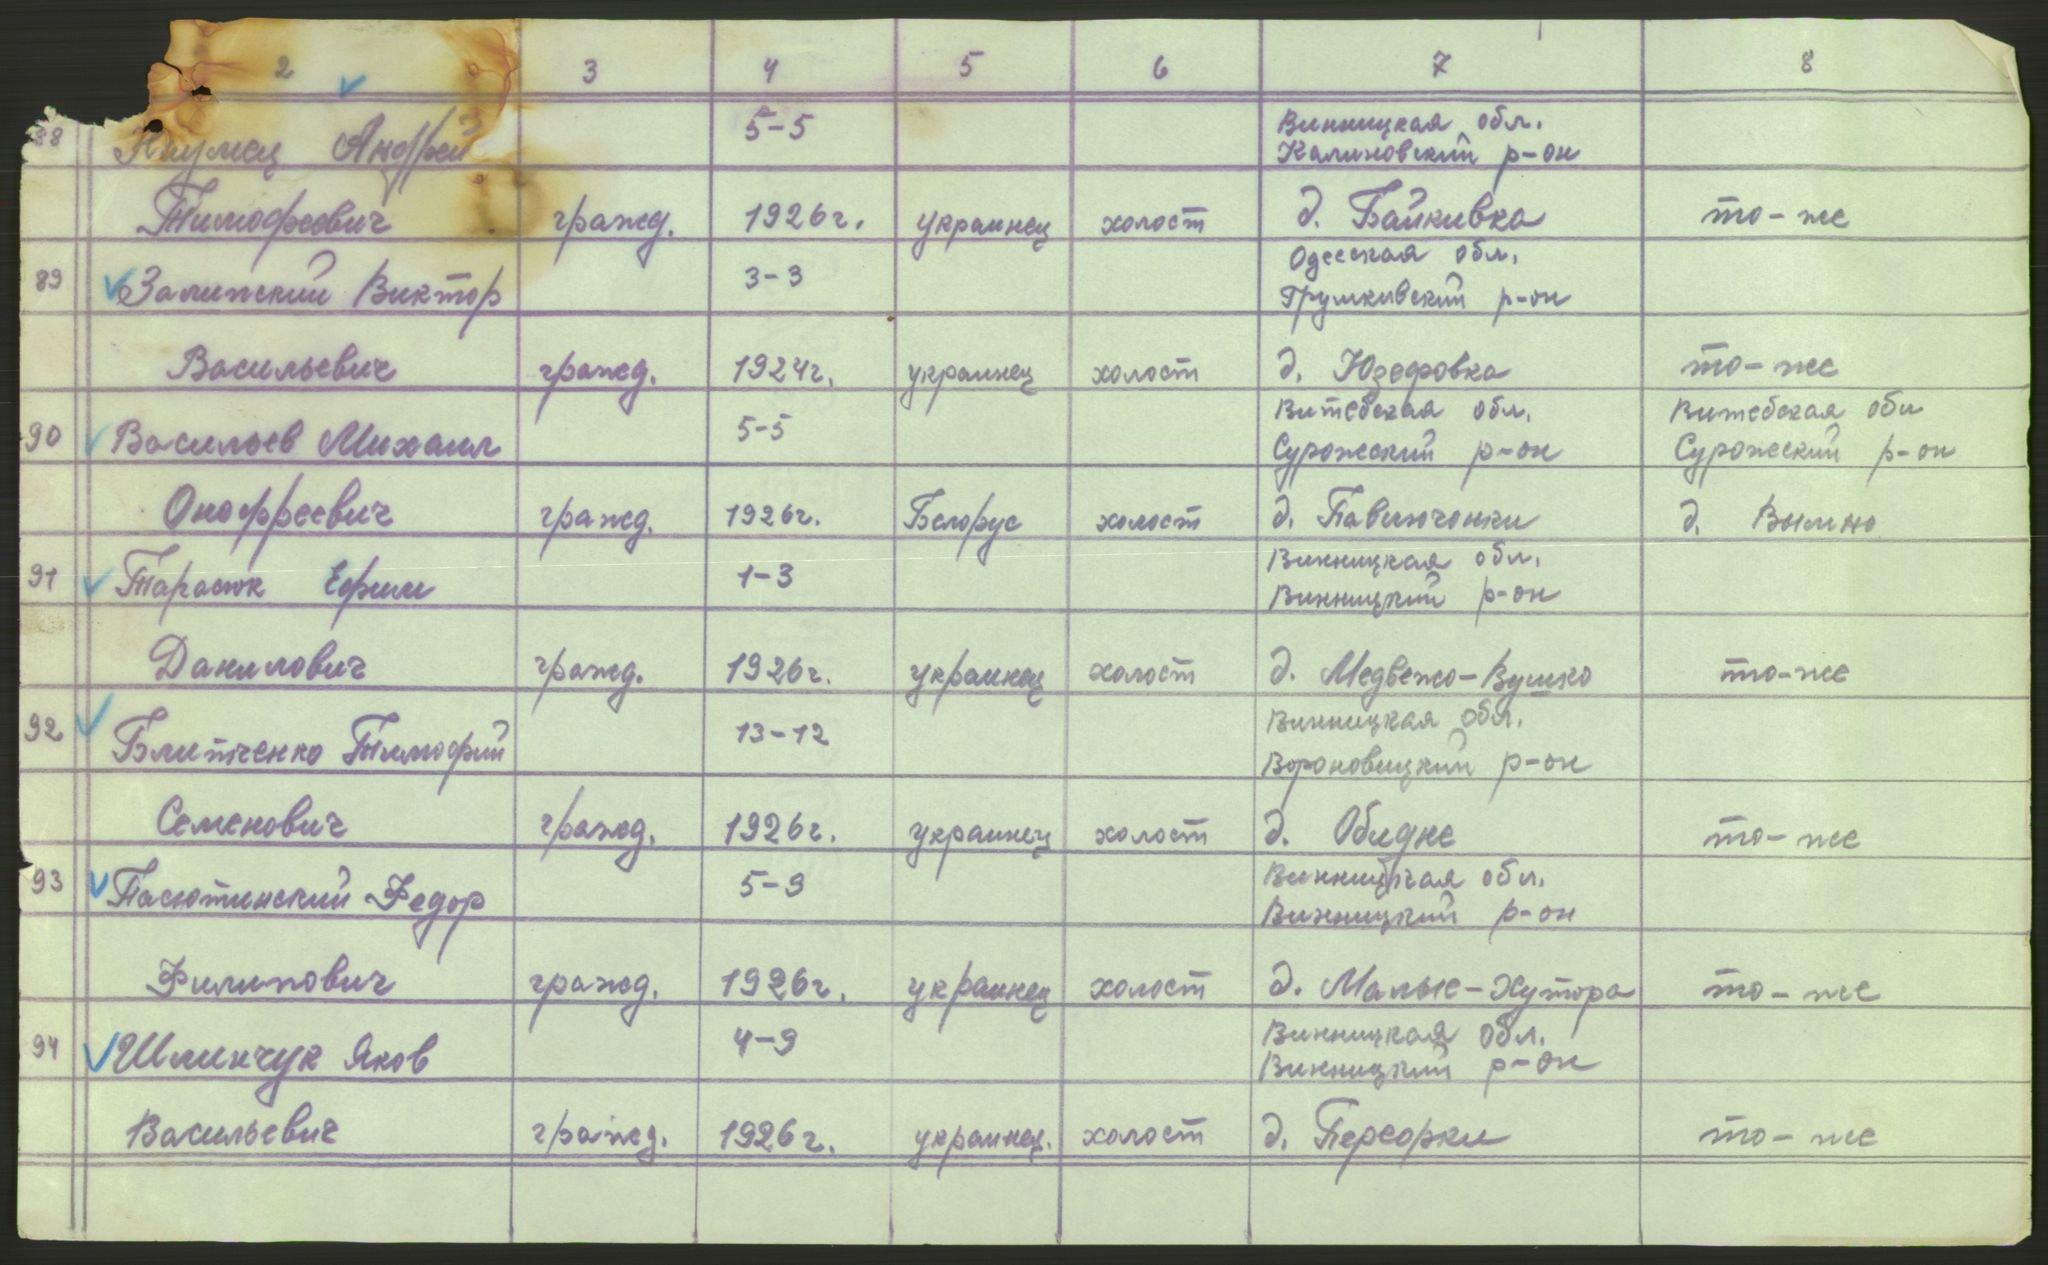 2 3 4 5 6 7 8
88 Андрей 5-5 Винницкая обл.
Калиновский р-он
Тимофеевич гражд. 1926г. украинец холост д. Байкивка то-же
89 Залинский Виктор 3-3 Одесская обл.
Грушкивский р-он
Васильевич гражд. 1924г. украинец холост д. Юзефовка то-же
90 Васильев Михаил 5-5 Витебская обл. Витебская обл
Сурожский р-он Сурожский р-он
Оноффреевич гражд. 1926г. Белорус холост д. Павлючонки д. Вымно
91 Тарасюк Ефим 1-3 Винницкая обл.
Винницкий р-он
Данилович гражд. 1926г. украинец холост д. Медвежо-Вушко то-же
92 Блитченко Тимофий 13-12 Винницкая обл.
Вороновицкий р-он
Семенович гражд. 1926г. украинец холост д. Обидне то-же
93 Пасютинский Федор 5-9 Винницкая обл.
Винницкий р-он
Филипович гражд. 1926г. украинец холост д. Малые-Хутора то-же
94 Шлинчук Яков 4-9 Винницкая обл.
Винницкий р-он
Васильевич гражд. 1926г. украинец. холост д. Переорки то-же